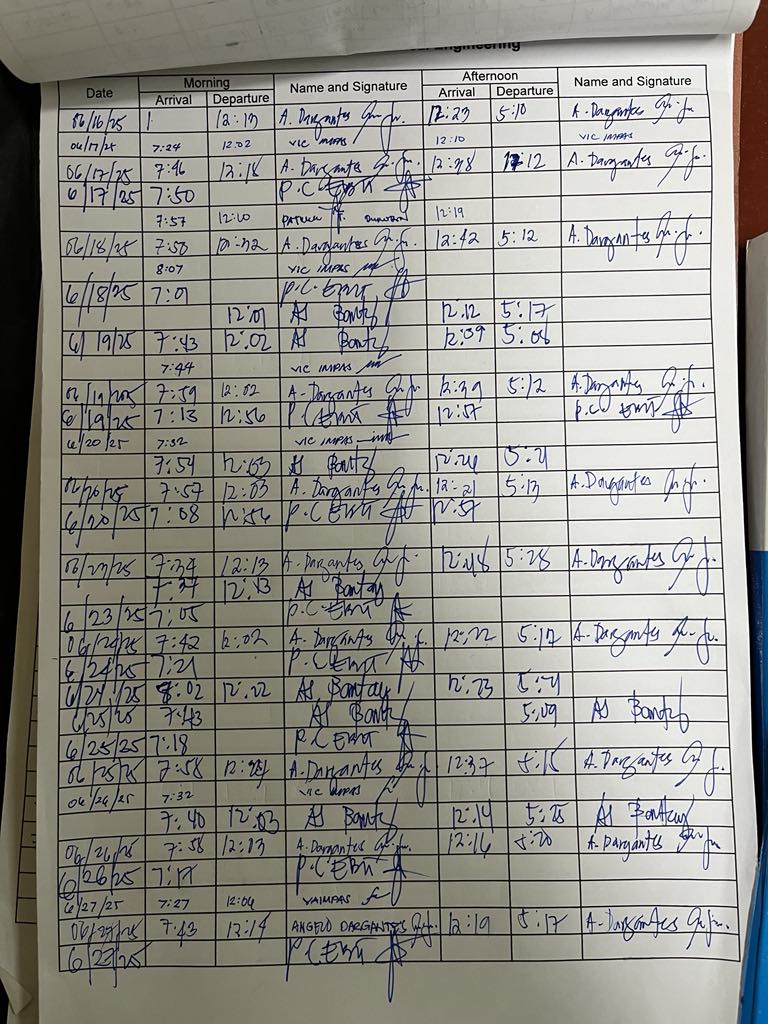 Engineering
Date Morning Name and Signature Afternoon Name and Signature
Arrival Departure Arrival Departure
06/16/25 12:13 A. Dargantes 12:23 5:10 A. Dargantes
06/17/25 7:24 12:02 VIC IMPAS 12:10 VIC IMPAS
06/17/25 7:46 12:18 A. Dargantes 12:12 A. Dargantes
6/17/25 7:50 P.C EBRU
7:57 12:10 12:19
06/18/25 7:50 A. Dargantes 12:42 5:12 A. Dargantes
8:07 VIC IMPAS
6/18/25 7:01 P.C. EBRU
12:01 AS Bantay 12:12 5:17
6/19/25 7:43 12:02 AS Bantay 12:09 5:06
7:44 VIC IMPAS
06/19/2025 7:59 12:02 A. Dargantes 12:39 5:12 A. Dargantes
6/19/25 7:13 12:56 P.C EBRU 12:57 P.C EBRU
6/20/25 7:32 VIC IMPAS
7:54 12:03 AS Bantay 5:21
06/20/25 7:57 12:03 A. Dargantes 12:21 5:13 A. Dargantes
6/20/25 7:08 12:56 P.C EBRU 12:57
06/23/25 7:34 12:13 A. Dargantes 12:48 5:28 A. Dargantes
7:37 12:13 AS Bantay
6/23/25 7:05 P.C. EBRU
06/24/25 7:42 12:02 A. Dargantes 12:22 5:17 A. Dargantes
6/24/25 7:21 P.C EBRU
6/24/25 8:02 12:22 AS Bantay 12:23 5:21
6/25/25 7:43 AS Bantay 5:09 AS Bantay
6/25/25 7:18 P.C EBRU
06/25/25 7:58 A. Dargantes 12:37 5:15 A. Dargantes
06/26/25 7:32 VIC IMPAS
7:40 12:03 AS Bantay 12:14 5:25 AS Bantay
06/26/25 7:58 12:03 A. Dargantes 12:16 5:20 A. Dargantes
6/26/25 7:17 P.C EBRU
6/27/25 7:27 12:06 VAIMPAS
06/27/25 7:43 12:14 ANGELO DARGANTES 12:19 5:17 A. Dargantes
6/27/25 P.C EBRU